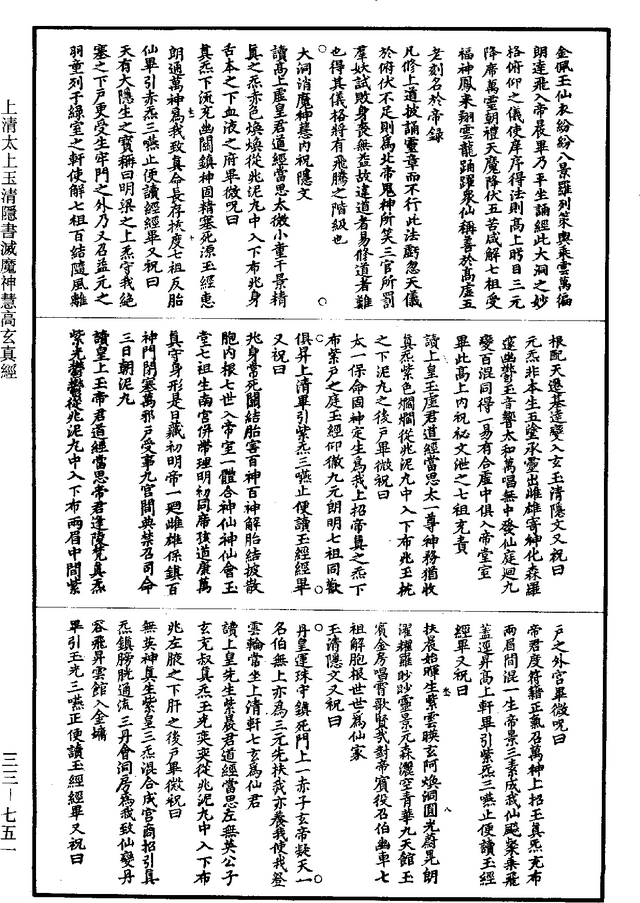 金佩玉仙衣紛紛入景羅列策輿乘雲萬徧
朗達飛入帝晨畢乃平坐誦經此大洞之妙
格俯仰之儀使庠序得法則高上眄目三元
降席萬靈朝禮天魔降伏五苦咸解七祖受
福神鳳來翔雲龍踊躍眾仙稱善於高虛五
老刻名於帝錄
凡修上道披誦靈章而不行此法虧忽天儀
於俯伏不足則為北帝鬼神所笑三官所罰
羣妖試敗身喪無益故違道者易修道者難
也得其儀格將有飛騰之階級也
大洞消魔神慧內祝隱文
讀高上虛皇君道經當思太微小童干景精
真之炁赤色煥煥從兆泥丸中入下布兆身
舌本之下血液之府畢微呪曰
真炁下流充幽關鎮神固精塞死源玉經惠
朗通萬神為我致真命長存拔度七祖反胎
仙畢引赤炁三嚥止便讀經經畢又祝曰
天有大隱生之寶稱曰明梁之上炁守我絕
塞之下戶更受生牢門之外乃又召益元之
羽童列于綠室之軒使解七祖百結隨風離
根配天遷基造變入玄玉清隱文又祝曰
元炁非本生五塗承靈出雌雄寄神化森羅
邃幽鬱玉音響太和萬唱無中發仙庭迴九
變百混同得一易有合虛中俱入帝堂室
畢此高上內祝祕文泄之七祖充責
讀上皇玉虛君道經當思太一尊神務猶收
真炁紫色熌熌從兆泥丸中入下布兆玉枕
之下泥丸之後戶畢微祝曰
太一保命固神定生為我上招帝真之炁下
布紫戶之庭玉經仰徹九元朗明七祖同歡
俱昇上清畢引紫炁三嚥止便讀玉經經畢
又祝曰
兆身常死關結胎害百神百神解胎結披散
胞內根七世入帝室一體合神仙神仙會玉
堂七祖生南宮併帶理明初同席孩道康萬
真守身形是日藏初明帝一迴雌雄保鎮百
神門閉塞萬邪戶受事九宮間典禁召司命
三日朝泥丸
讀皇上玉帝君道經當思帝君逢陵梵真炁
紫光鬱鬱從兆泥丸中入下布兩眉中間紫
戶之外宮畢微呪曰
帝君度符籍正氣召萬神上招玉真炁充布
兩眉間混一生帝景三素成我仙飈粲乘飛
蓋逕昇高上軒畢引紫炁三嚥止便讀玉經
經畢又祝曰
扶晨始暉生紫雲暎玄阿煥洞圓光蔚晃朗
濯耀羅眇眇靈景元森灑空青華九天館玉
賓金房唱霄歌賢哉對帝賓役召伯幽車七
祖解胞根世世為仙家
玉清隱文又祝曰
丹皇運珠守鎮死門上一赤子玄帝凝天一
名伯無上亦為三元先扶我亦養我使我登
雲輪當坐上清軒七玄為仙君
讀上皇先生紫晨君道經當思左無英公子
玄充叔真炁玉光奕奕從兆泥丸中入下布
兆左腋之下肝之後戶畢微祝曰
無英神真生紫皇三炁混合成宮商招引真
炁鎮膀胱通流三丹會洞房為我致仙變丹
容飛昇雲館入金墉
畢引玉光三嚥止便讀玉經經畢又祝曰
上清太上玉清隱書滅魔神慧高玄真經
三三－七五一